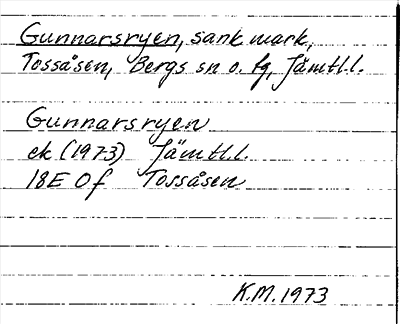 Gunnarsryen, sank mark,
Tossåsen, Bergs sn o. fg, Jämtl.l.
Gunnarsryen
ek (1973) Jämtl.l.
18E 0f Tossåsen
K.M. 1973